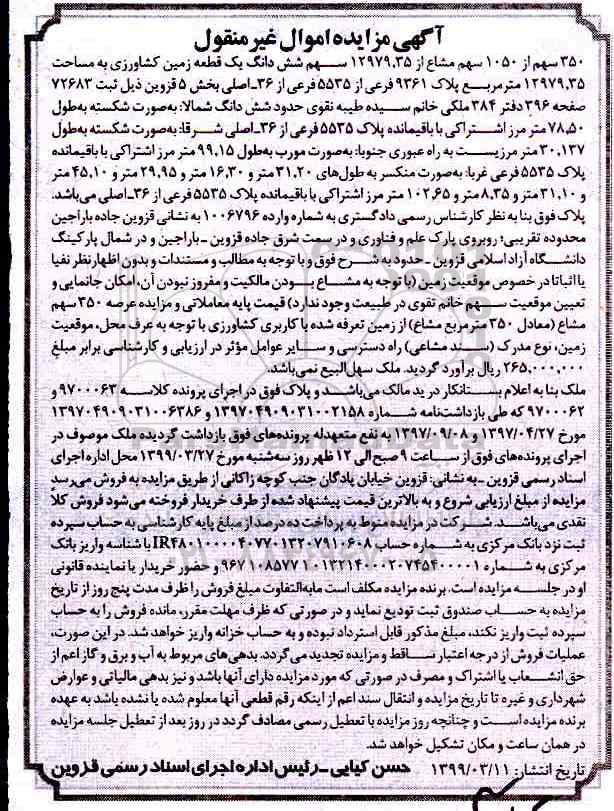 آگهی مزایده اموال غیرمنقول
۳۵۰ سهم از ۱۰۵۰ سهم مشاع از ۱۲۹۷۹٫۳۵ سهم شش دانگ یک قطعه زمین کشاورزی به مساحت
۱۲۹۷۹٫۳۵ مترمربع پلاک ۹۳۶۱ فرعی از ۵۵۳۵ فرعی از ۳۶ـاصلی بخش ۵ قزوین ذیل ثبت ۷۲۶۸۳
صفحه ۳۹۶ دفتر ۳۸۴ ملکی خانم سیده طیبه نقوی حدود شش دانگ شمالا: به‌صورت شکسته به‌طول
۷۸٫۵۰ متر مرز اشتراکی با باقیمانده پلاک ۵۵۳۵ فرعی از ۳۶ـاصلی شرقا: به‌صورت شکسته به‌طول
۳۰٫۱۳۷ متر مرزیست به راه عبوری جنوبا: به‌صورت مورب به‌طول ۹۹٫۱۵ متر مرز اشتراکی با باقیمانده
پلاک ۵۵۳۵ فرعی غربا: به‌صورت منکسر به طول‌های ۳۱٫۲۰ متر و ۱۶٫۳۰ متر و ۲۹٫۹۵ متر و ۴۵٫۱۰ متر
و ۳۱٫۱۰ متر و ۸٫۳۵ متر و ۱۰۲٫۶۵ متر مرز اشتراکی با باقیمانده پلاک ۵۵۳۵ فرعی از ۳۶ـاصلی می‌باشد.
پلاک فوق بنا به نظر کارشناس رسمی دادگستری به شماره وارده ۱۰۰۶۷۹۶ به نشانی قزوین جاده باراجین
محدوده تقریبی؛ روبروی پارک علم و فناوری و در سمت شرق جاده قزوین ـ باراجین و در شمال پارکینگ
دانشگاه آزاد اسلامی قزوین ـ حدود به شرح فوق و با توجه به مطالب و مستندات و بدون اظهارنظر نفیا
یا اثباتا در خصوص موقعیت زمین (با توجه به مشاع بودن مالکیت و مفروز نبودن آن، امکان جانمایی و
تعیین موقعیت سهم خانم تقوی در طبیعت وجود ندارد) قیمت پایه معاملاتی و مزایده عرصه ۳۵۰ سهم
مشاع (معادل ۳۵۰ مترمربع مشاع) از زمین تعرفه شده با کاربری کشاورزی با توجه به عرف محل، موقعیت
زمین، نوع مدرک (سند مشاعی) راه دسترسی و سایر عوامل مؤثر در ارزیابی و کارشناسی برابر مبلغ
۲۶۵٫۰۰۰٫۰۰۰ ریال برآورد گردید. ملک سهل‌البیع نمی‌باشد.
ملک بنا به اعلام بستانکار در ید مالک می‌باشد و پلاک فوق در اجرای پرونده کلاسه ۹۷۰۰۰۶۳ و
۹۷۰۰۰۶۲ که طی بازداشت‌نامه شماره ۱۳۹۷۰۴۹۰۹۰۳۱۰۰۲۱۵۸ و ۱۳۹۷۰۴۹۰۹۰۳۱۰۰۶۳۸۶
مورخ ۱۳۹۷/۰۴/۲۷ و ۱۳۹۷/۰۹/۰۸ به نفع متعهدله پرونده‌های فوق بازداشت گردیده ملک موصوف در
اجرای پرونده‌های فوق از ساعت ۹ صبح الی ۱۲ ظهر روز سه‌شنبه مورخ ۱۳۹۹/۰۳/۲۷ محل اداره اجرای
اسناد رسمی قزوین ـ به نشانی: قزوین خیابان پادگان جنب کوچه زاکانی از طریق مزایده به فروش می‌رسد
مزایده از مبلغ ارزیابی شروع و به بالاترین قیمت پیشنهاد شده از طرف خریدار فروخته می‌شود فروش کلا
نقدی می‌باشد. شرکت در مزایده منوط به پرداخت ده درصد از مبلغ پایه کارشناسی به حساب سپرده
ثبت نزد بانک مرکزی به شماره حساب IR۴۸۰۱۰۰۰۰۴۰۷۷۰۱۳۲۰۷۹۱۰۶۰۸ با شناسه واریز بانک
مرکزی به شماره ۹۶۷۱۰۸۵۷۷۱۰۱۳۲۱۴۰۰۰۲۰۷۴۵۴۰۰۰۰۱ و حضور خریدار یا نماینده قانونی
او در جلسه مزایده است. برنده مزایده مکلف است مابه‌التفاوت مبلغ فروش را ظرف مدت پنج روز از تاریخ
مزایده به حساب صندوق ثبت تودیع نماید و در صورتی که ظرف مهلت مقرر، مانده فروش را به حساب
سپرده ثبت واریز نکند، مبلغ مذکور قابل استرداد نبوده و به حساب خزانه واریز خواهد شد. در این صورت،
عملیات فروش از درجه اعتبار ساقط و مزایده تجدید می‌گردد. بدهی‌های مربوط به آب و برق و گاز اعم از
حق انشعاب یا اشتراک و مصرف در صورتی که مورد مزایده دارای آنها باشد و نیز بدهی مالیاتی و عوارض
شهرداری و غیره تا تاریخ مزایده و انتقال سند اعم از اینکه رقم قطعی آنها معلوم شده یا نشده باشد به عهده
برنده مزایده است و چنانچه روز مزایده با تعطیل رسمی مصادف گردد در روز بعد از تعطیل جلسه مزایده
در همان ساعت و مکان تشکیل خواهد شد.
تاریخ انتشار: ۱۳۹۹/۰۳/۱۱ حسن کیایی ـ رئیس اداره اجرای اسناد رسمی قزوین